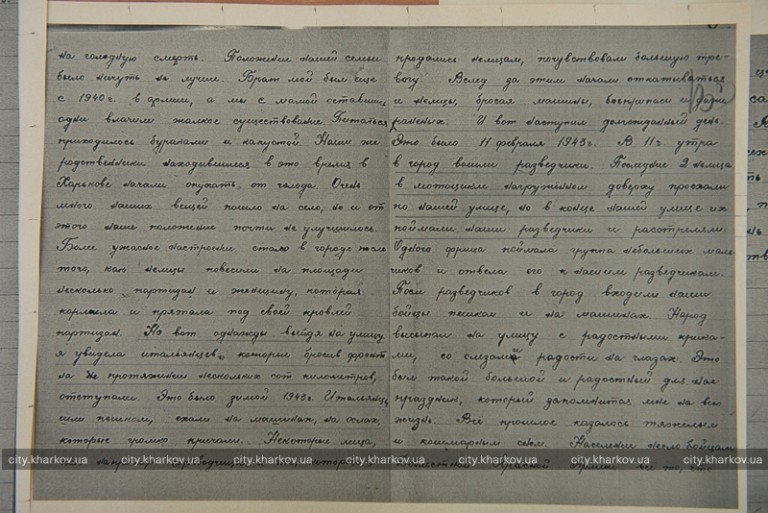 на голодную смерть. Положение нашей семьи
было ничуть не лучше. Брат мой был еще
с 1940 г. в армии, а мы с мамой оставшись
одни влачили жалкое существование. Питаться
приходилось бураками и капустой. Наши же
родственники находившиеся в это время в
Харькове начали опухать от голода. Очень
много наших вещей пошло на село, но и от
этого наше положение почти не улучшилось.
Более ужасное настроение стало в городе после
того, как немцы повесили на площади
несколько партизан и женщину, которая
кормила и прятала под своей кровлей
партизан. Но вот однажды выйдя на улицу
я увидела итальянцев, которые бросив фронт
на протяжении нескольких сот километров,
отступали. Это было зимой 1943 г. Итальянцы
шли пешком, ехали на машинах, на ослах,
которые громко кричали. Некоторые лица,
продались немцам, почувствовали большую тре-
вогу. Вслед за этим начали откатываться
и немцы, бросая машины, боеприпасы и даже
раненых. И вот наступил долгожданный день.
Это было 11 февраля 1943 г. В 11 ч. утра
в город вошли разведчики. Последние 2 немца
в мотоцикле нагруженном доверху проехали
по нашей улице, но в конце нашей улице их
поймали наши разведчики и расстреляли.
Одного фрица поймала группа небольших маль-
чиков и отвела его к нашим разведчикам.
После разведчиков в город входили наши
бойцы пешком и на машинах. Народ
высыпал на улицу с радостными крика-
ми, со слезами радости на глазах. Это
был такой большой и радостный для нас
праздник, который запомнится мне на всю
жизнь. Всё прошлое казалось тяжёлым
и кошмарным сном. Население несло бойцам
city.kharkov.ua city.kharkov.ua city.kharkov.ua city.kharkov.ua city.kharkov.ua city.kharkov.ua